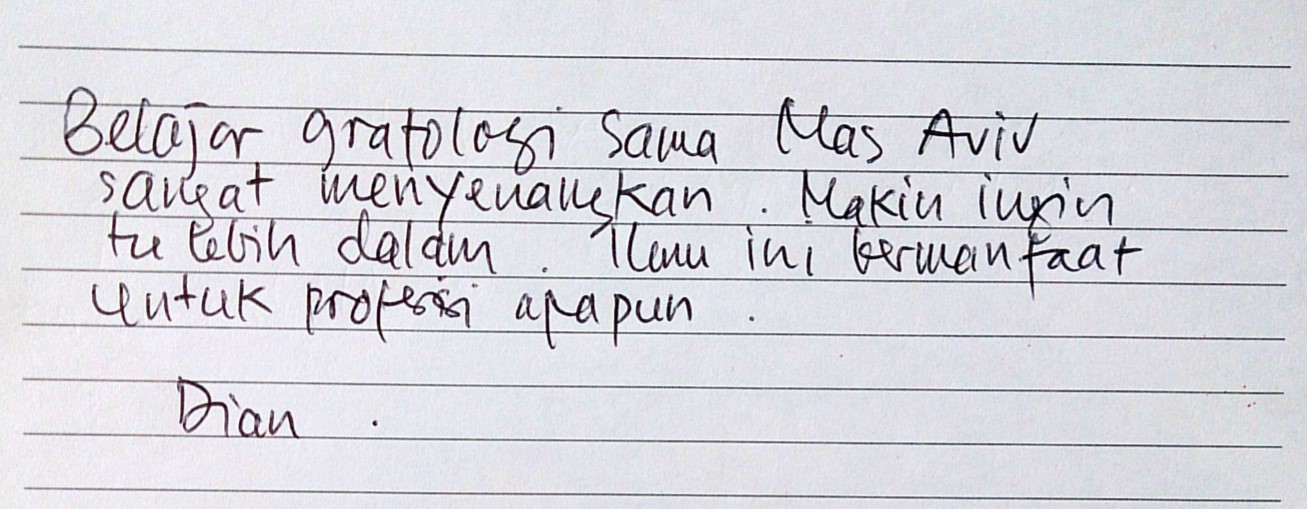 Belajar grafologi sama Mas Aviv
sangat menyenangkan. Makin ingin
tu lebih dalam. Ilmu ini bermanfaat
untuk profesi apapun.
Dian.